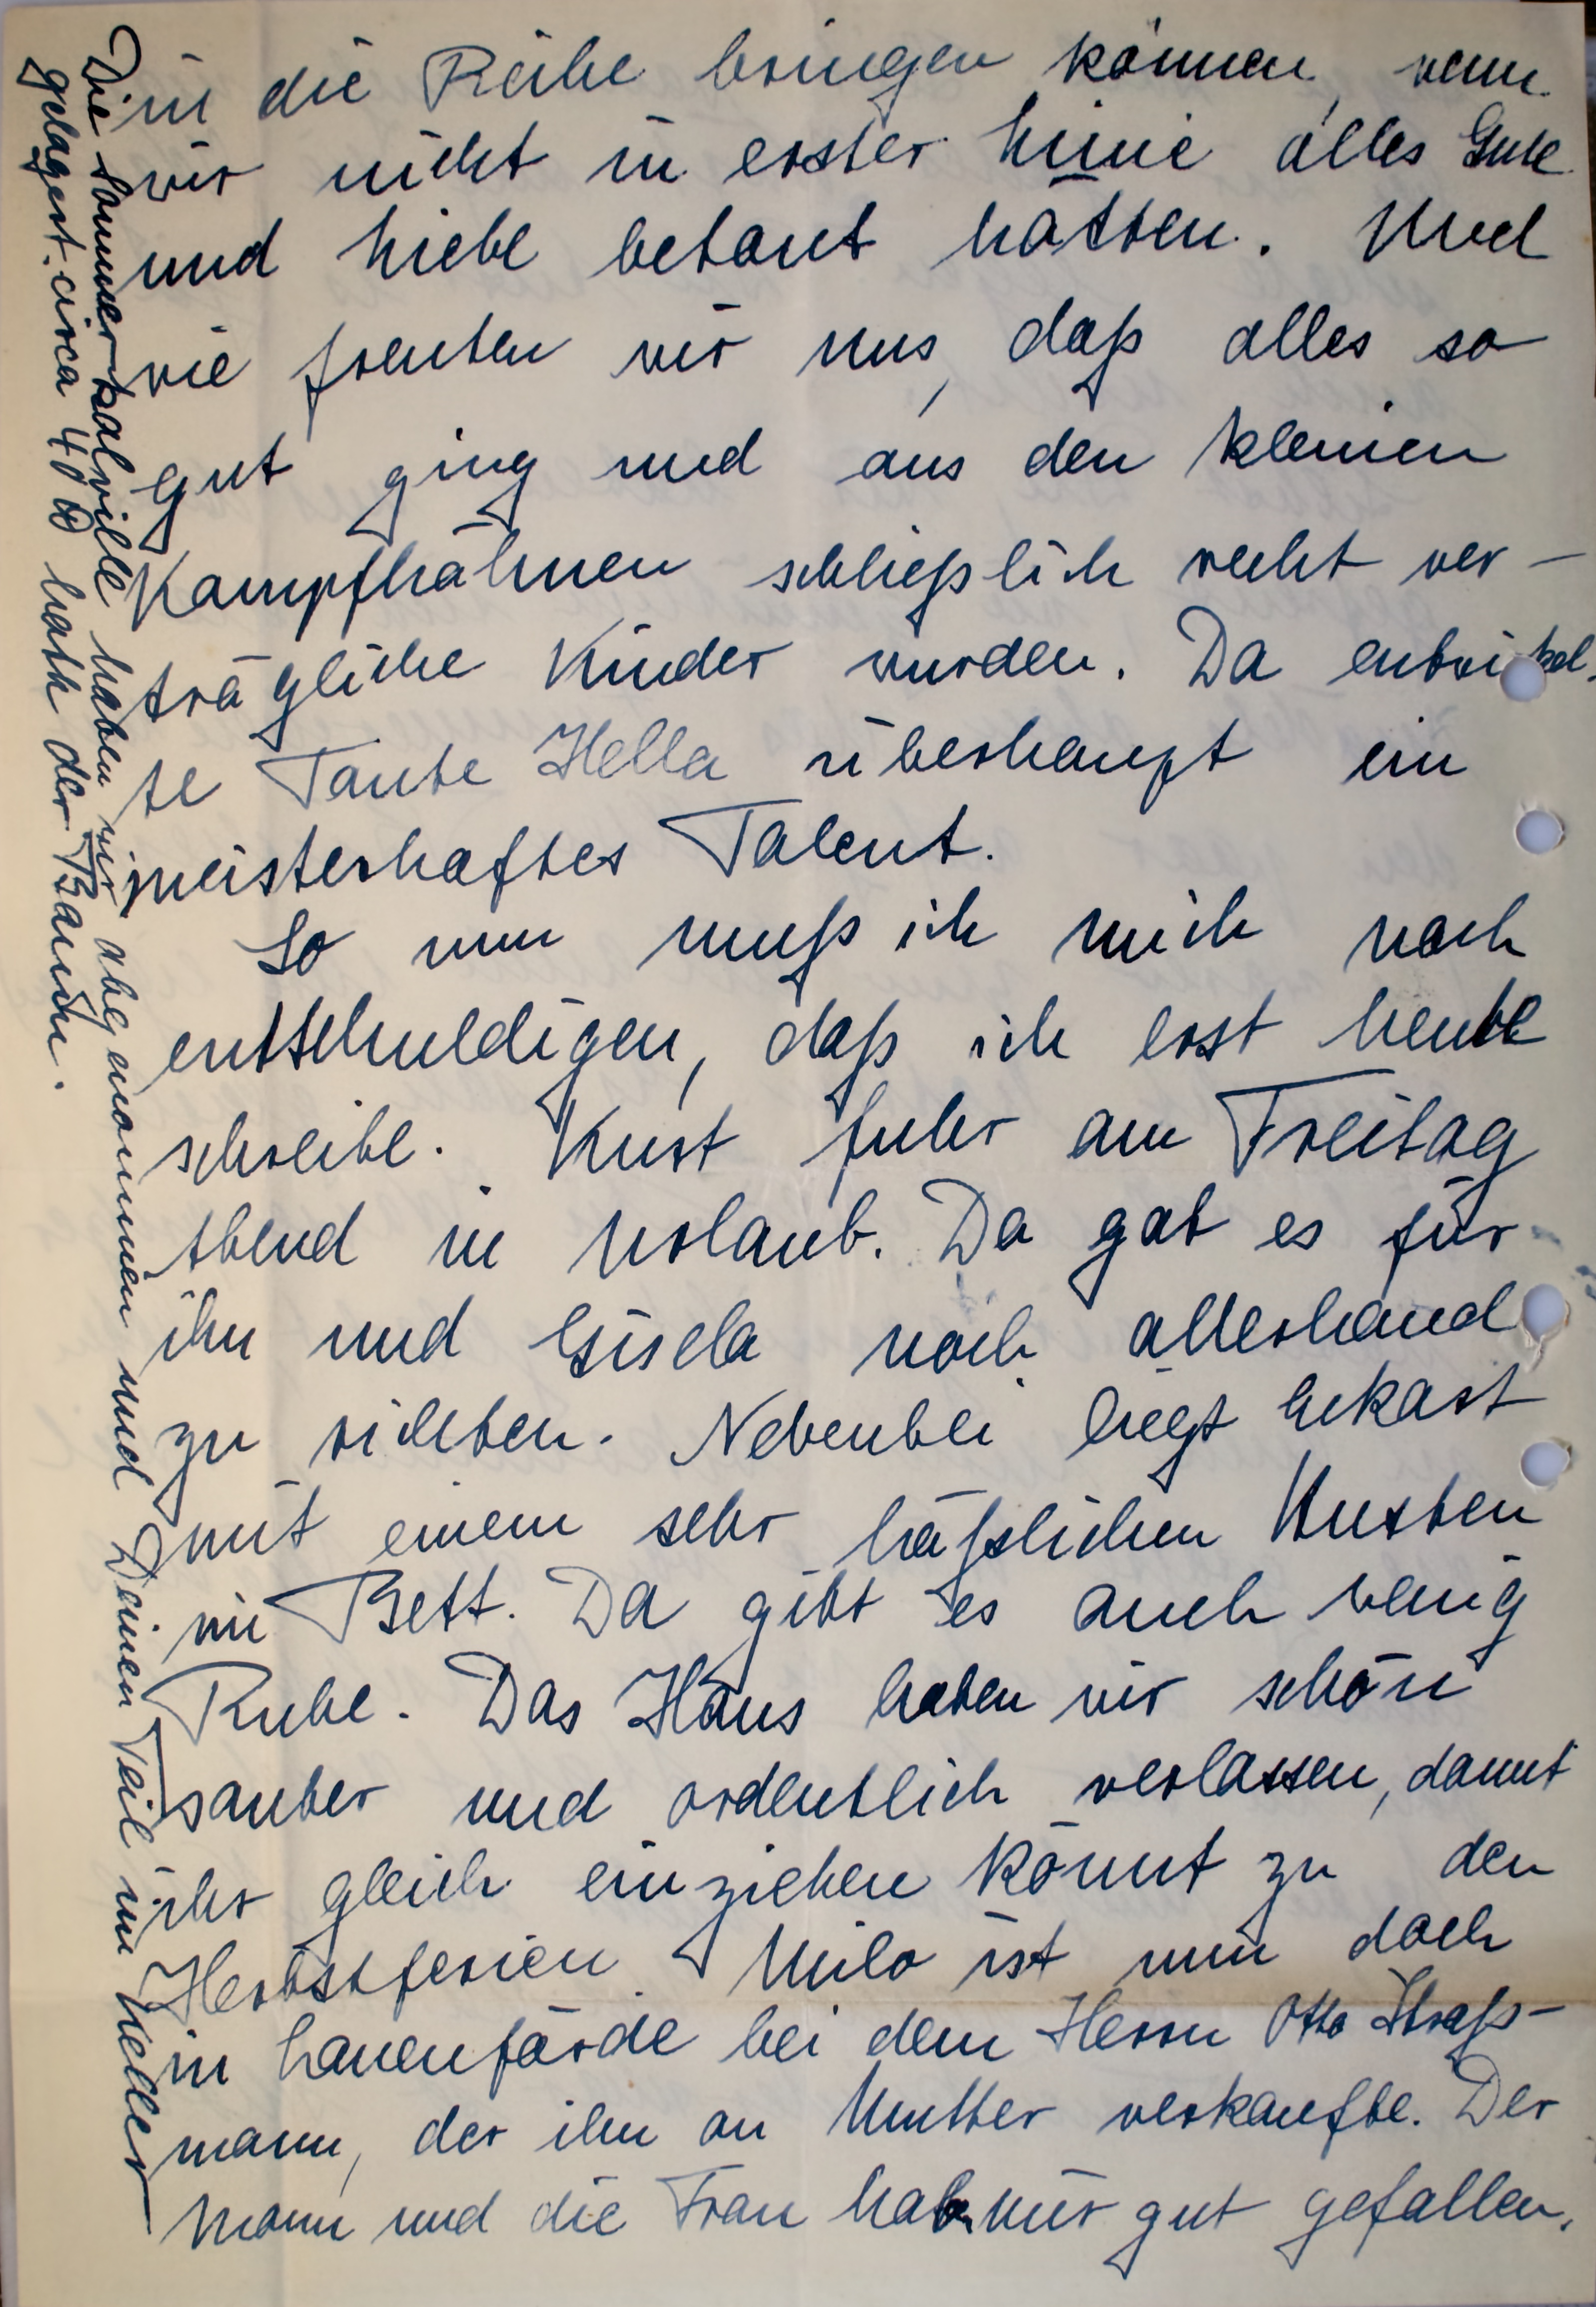 in die Reihe bringen können, wenn
wir nicht in erster Linie alles Gute
und Liebe betont hätten. Und
wie freuten wir uns, daß alles so
gut ging und aus den kleinen
Kampfhähnen schließlich recht ver-
trägliche Kinder wurden. Da entwickel-
te Tante Hella überhaupt ein
meisterhaftes Talent.
So nun muß ich mich noch
entschuldigen, daß ich erst heute
schreibe. Kurt fuhr am Freitag
Abend in Urlaub. Da gab es für
ihn und Gisela noch allerhand
zu richten. Nebenbei liegt Eckart
mit einem sehr häßlichen Husten
im Bett. Da gibt es auch wenig
Ruhe. Das Haus haben wir schön
sauber und ordentlich verlassen, damit
ihr gleich einziehen könnt zu den
Herbstferien. Milo ist nun doch
in Lauenförde bei dem Herrn Otto Straß-
mann, der ihn an Mutter verkaufte. Der
Mann und die Frau haben mir gut gefallen.
Die Sommerkalville haben wir abgenommen und Deinen Teil im Keller
gelagert. circa 40 ℔ hatte der Baum.